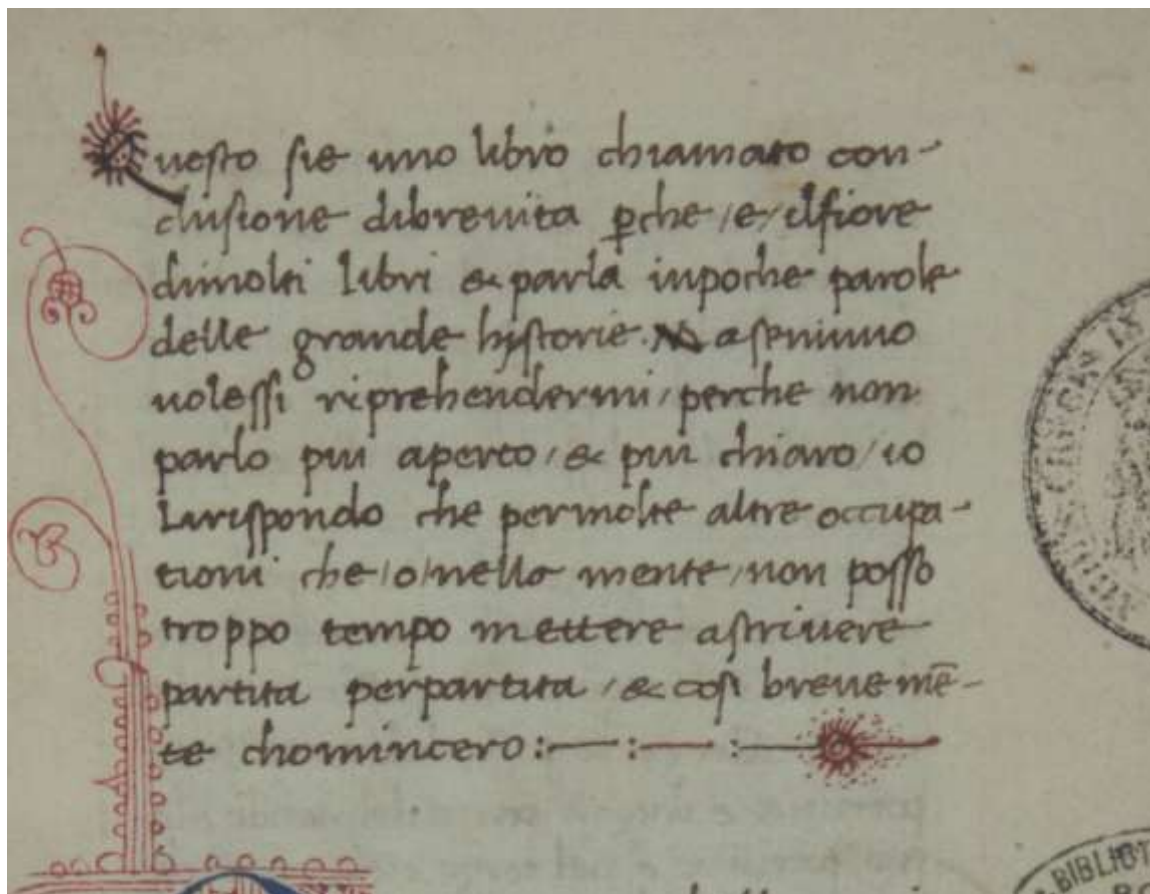 Questo sie uno libro chiamato con-
clusione dibrevita p̱che /e/ ilfiore
dimolti libri & parla inpoche parole
delle grande hystorie. M aseniuno
volessi riprehendermi / perche non
parlo piu aperto / & piu chiaro / io
Lirispondo che permolte altre occupa-
tioni che /o/ nella mente / non posso
troppo tempo mettere ascrivere
partita perpartita / & cosi breve mē-
te chomincero :— : — : —
BIBLIOT